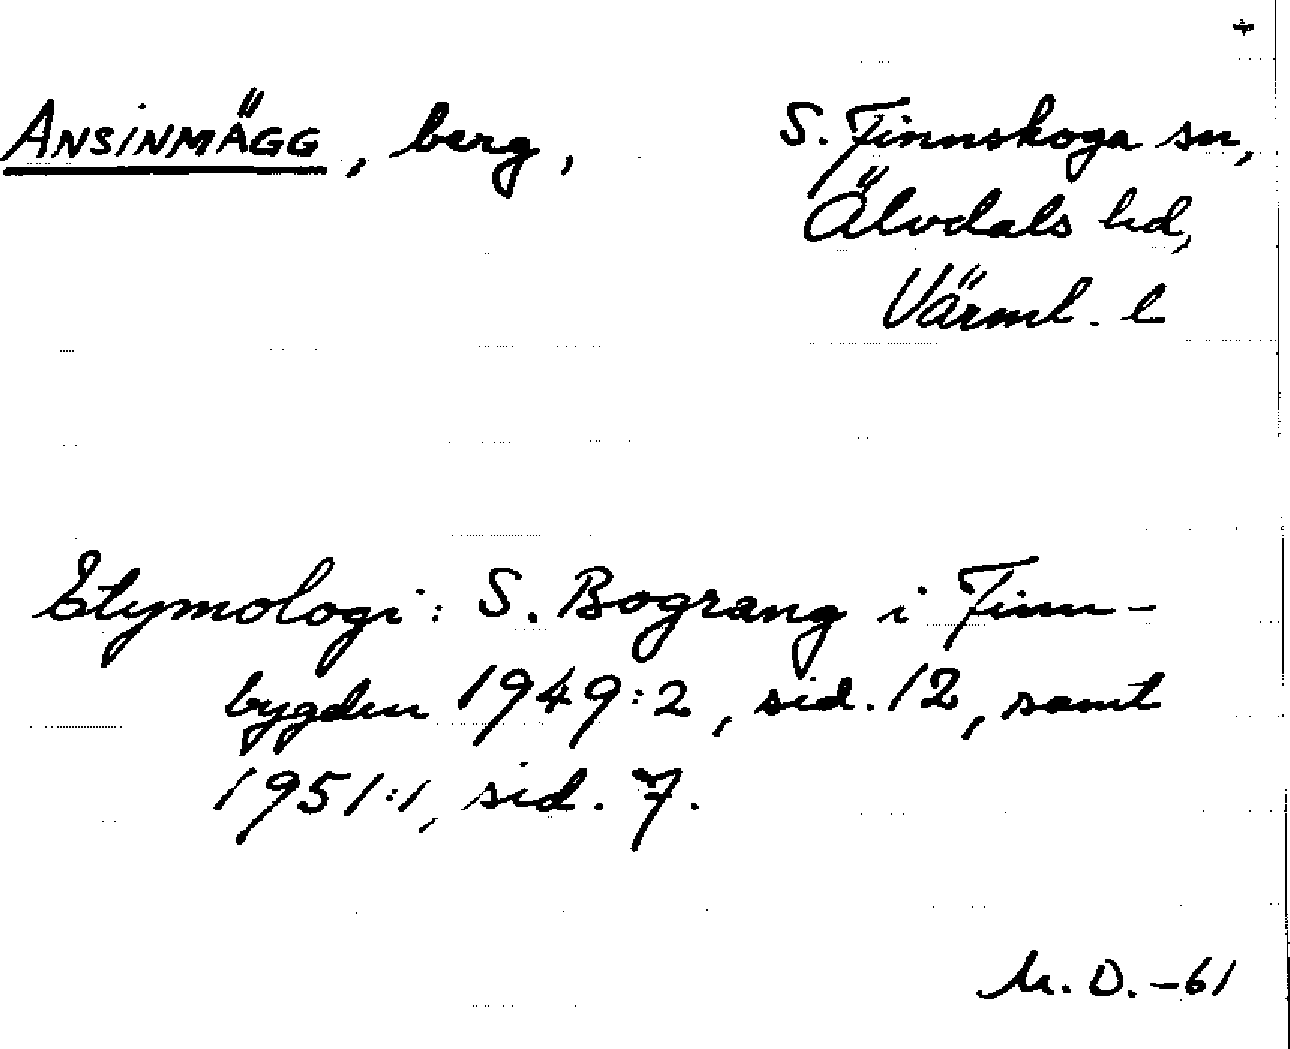 ANSINMÄGG, berg, S. Finnskoga sn,
Älvdals hd,
Värml. l
Etymologi: S. Bograng i Finn-
bygden 1949:2, sid. 12, samt
1951:1, sid. 7.
M. D. -61